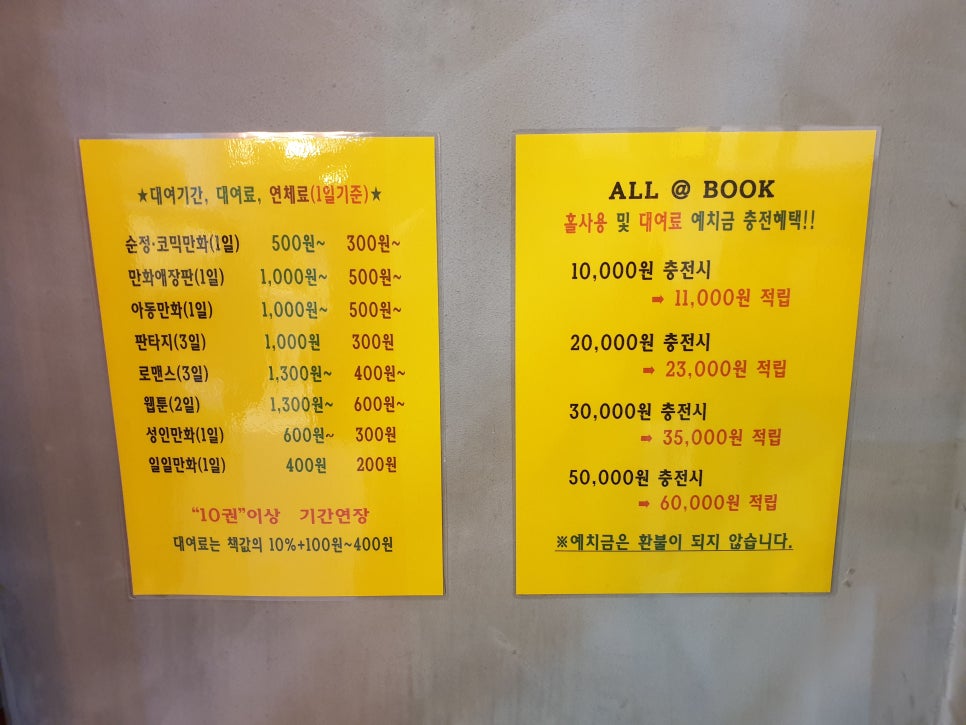 ★대여기간, 대여료, 연체료(1일기준)★
순정·코믹만화(1일) 500원~ 300원~
만화애장판(1일) 1,000원~ 500원~
아동만화(1일) 1,000원~ 500원~
판타지(3일) 1,000원 300원
로맨스(3일) 1,300원~ 400원~
웹툰(2일) 1,300원~ 600원~
성인만화(1일) 600원~ 300원
일일만화(1일) 400원 200원
“10권”이상 기간연장
대여료는 책값의 10%+100원~400원
ALL @ BOOK
홀사용 및 대여료 예치금 충전혜택!!
10,000원 충전시
➡ 11,000원 적립
20,000원 충전시
➡ 23,000원 적립
30,000원 충전시
➡ 35,000원 적립
50,000원 충전시
➡ 60,000원 적립
※예치금은 환불이 되지 않습니다.